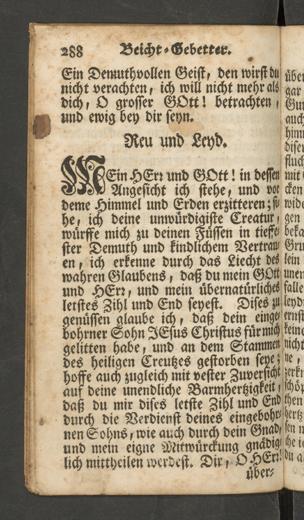 288 Beicht-Gebetter.
Ein Demuthvollen Geist, den wirst du
nicht verachten, ich will nicht mehr als
dich, O grosser GOtt! betrachten,
und ewig bey dir seyn.
Reu und Leyd.
MEin HErr und GOtt! in dessen
Angesicht ich stehe, und vor
deme Himmel und Erden erzitteren; si-
he, ich deine unwürdigiste Creatur,
würffe mich zu deinen Füssen in tieffe-
ster Demuth und kindlichem Vertrau-
en, ich erkenne durch das Liecht des
wahren Glaubens, daß du mein GOtt
und HErr, und mein übernatürliches
letstes Zihl und End seyest. Dises zu
genüssen glaube ich, daß dein einge-
bohrner Sohn JEsus Christus für mich
gelitten habe, und an dem Stammen
des heiligen Creutzes gestorben seye;
hoffe auch zugleich mit vester Zuversicht
auf deine unendliche Barmhertzigkeit,
daß du mir dises letste Zihl und End
durch die Verdienst deines eingebohr-
nen Sohns, wie auch durch dein Gnad,
und mein eigne Mitwürckung gnädig-
lich mittheilen werdest. Dir, O HErr!
über-